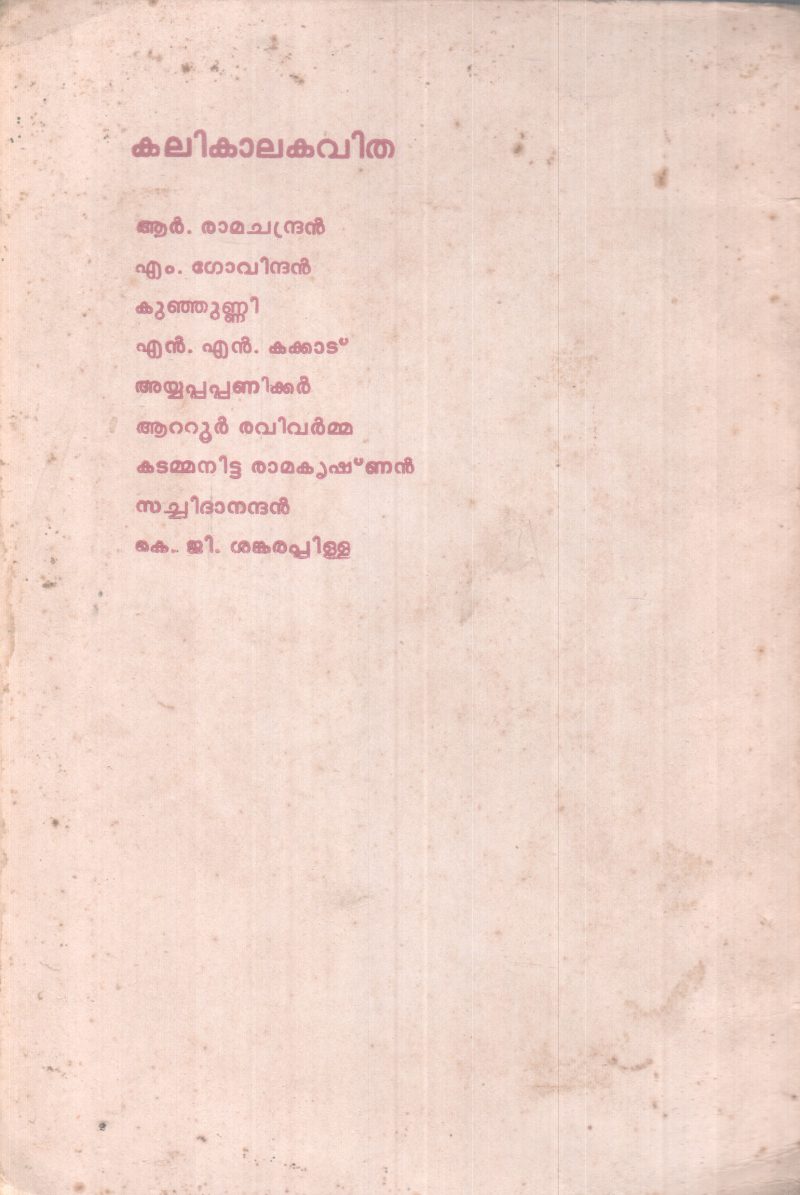 കലികാലകവിത
ആർ. രാമചന്ദ്രൻ
എം. ഗോവിന്ദൻ
കുഞ്ഞുണ്ണി
എൻ. എൻ. കക്കാട്
അയ്യപ്പപ്പണിക്കർ
ആററൂർ രവിവർമ്മ
കടമ്മനിട്ട രാമകൃഷ്ണൻ
സച്ചിദാനന്ദൻ
കെ. ജി. ശങ്കരപ്പിള്ള